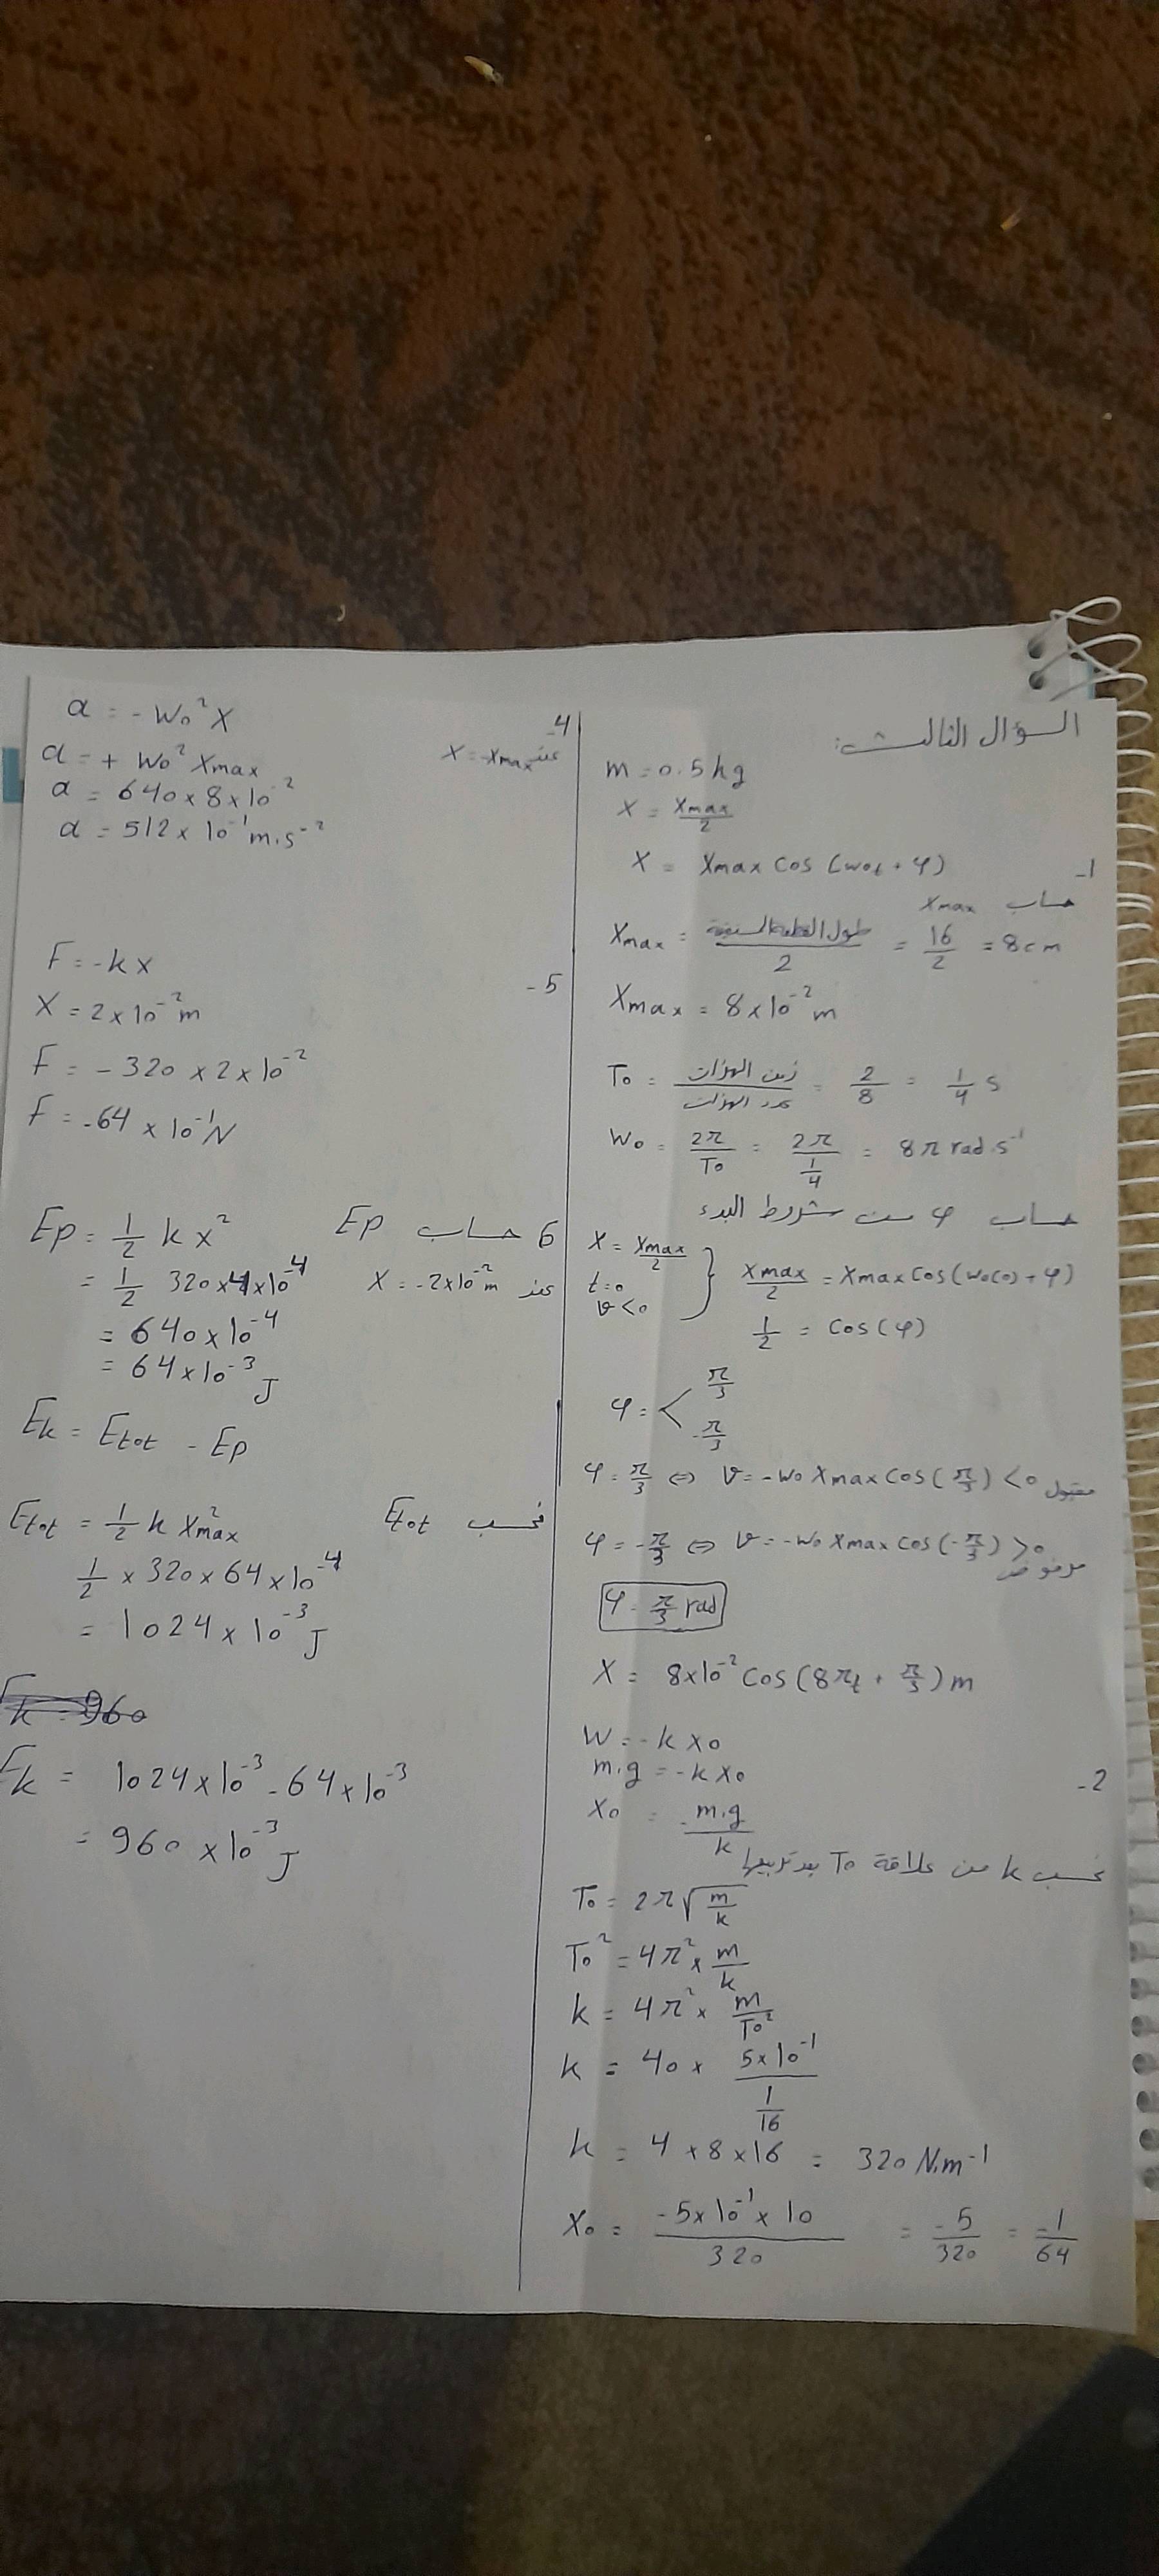 السؤال الثالث:
m = 0.5 kg
x = xmax/2
-1
x = xmax cos (ω0t + φ)
حساب xmax
xmax = طول القطعة المستقيمة / 2 = 16/2 = 8cm
xmax = 8×10⁻² m
T0 = زمن الهزات / عدد الهزات = 2/8 = 1/4 s
ω0 = 2π/T0 = 2π/(1/4) = 8π rad.s⁻¹
حساب φ من شروط البدء
x = xmax/2
t = 0
v < 0
} xmax/2 = xmax cos(ω0(0) + φ)
1/2 = cos(φ)
φ = < π/3
-π/3
φ = π/3 ⇔ v = -ω0 xmax cos(π/3) < 0 مقبول
φ = -π/3 ⇔ v = -ω0 xmax cos(-π/3) > 0 مرفوض
φ = π/3 rad
x = 8×10⁻² cos(8πt + π/3) m
-2
W = -k x0
m.g = -k x0
x0 = -m.g/k
نحسب k من علاقة T0 بعد تربيعها
T0 = 2π√(m/k)
T0² = 4π² × m/k
k = 4π² × m/T0²
k = 40 × 5×10⁻¹/(1/16)
k = 4 × 8 × 16 = 320 N.m⁻¹
x0 = -5×10⁻¹×10/320 = -5/320 = -1/64
-4
a = -ω0² x
عند x = -xmax
a = + ω0² xmax
a = 640 × 8 × 10⁻²
a = 512 × 10⁻¹ m.s⁻²
-5
F = -k x
x = 2×10⁻² m
F = -320 × 2×10⁻²
F = -64 × 10⁻¹ N
6 حساب Ep
Ep = 1/2 k x²
عند x = -2×10⁻² m
= 1/2 320×4×10⁻⁴
= 640×10⁻⁴
= 64×10⁻³ J
Ek = Etot - Ep
نحسب Etot
Etot = 1/2 k x²max
1/2 × 320 × 64 × 10⁻⁴
= 1024 × 10⁻³ J
Ek = 960
Ek = 1024×10⁻³ - 64×10⁻³
= 960 × 10⁻³ J